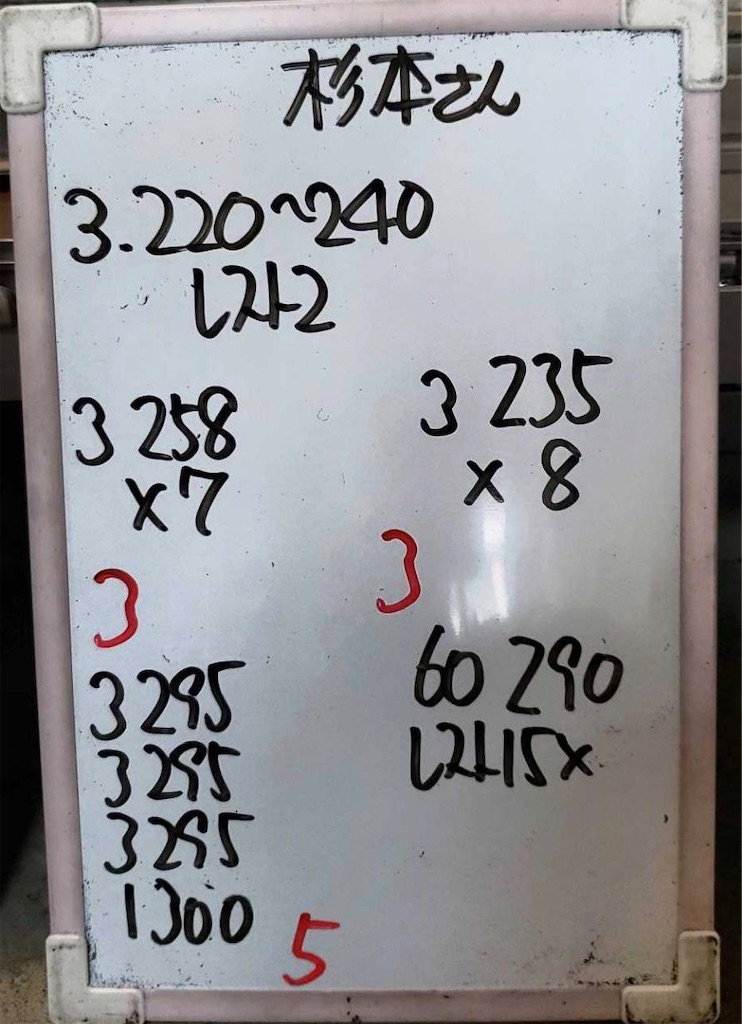 杉本さん
3.220~240
レスト2
3 258
×7
3 235
× 8
3
3
3 295
3 295
3 295
1300
5
60 290
レスト15×